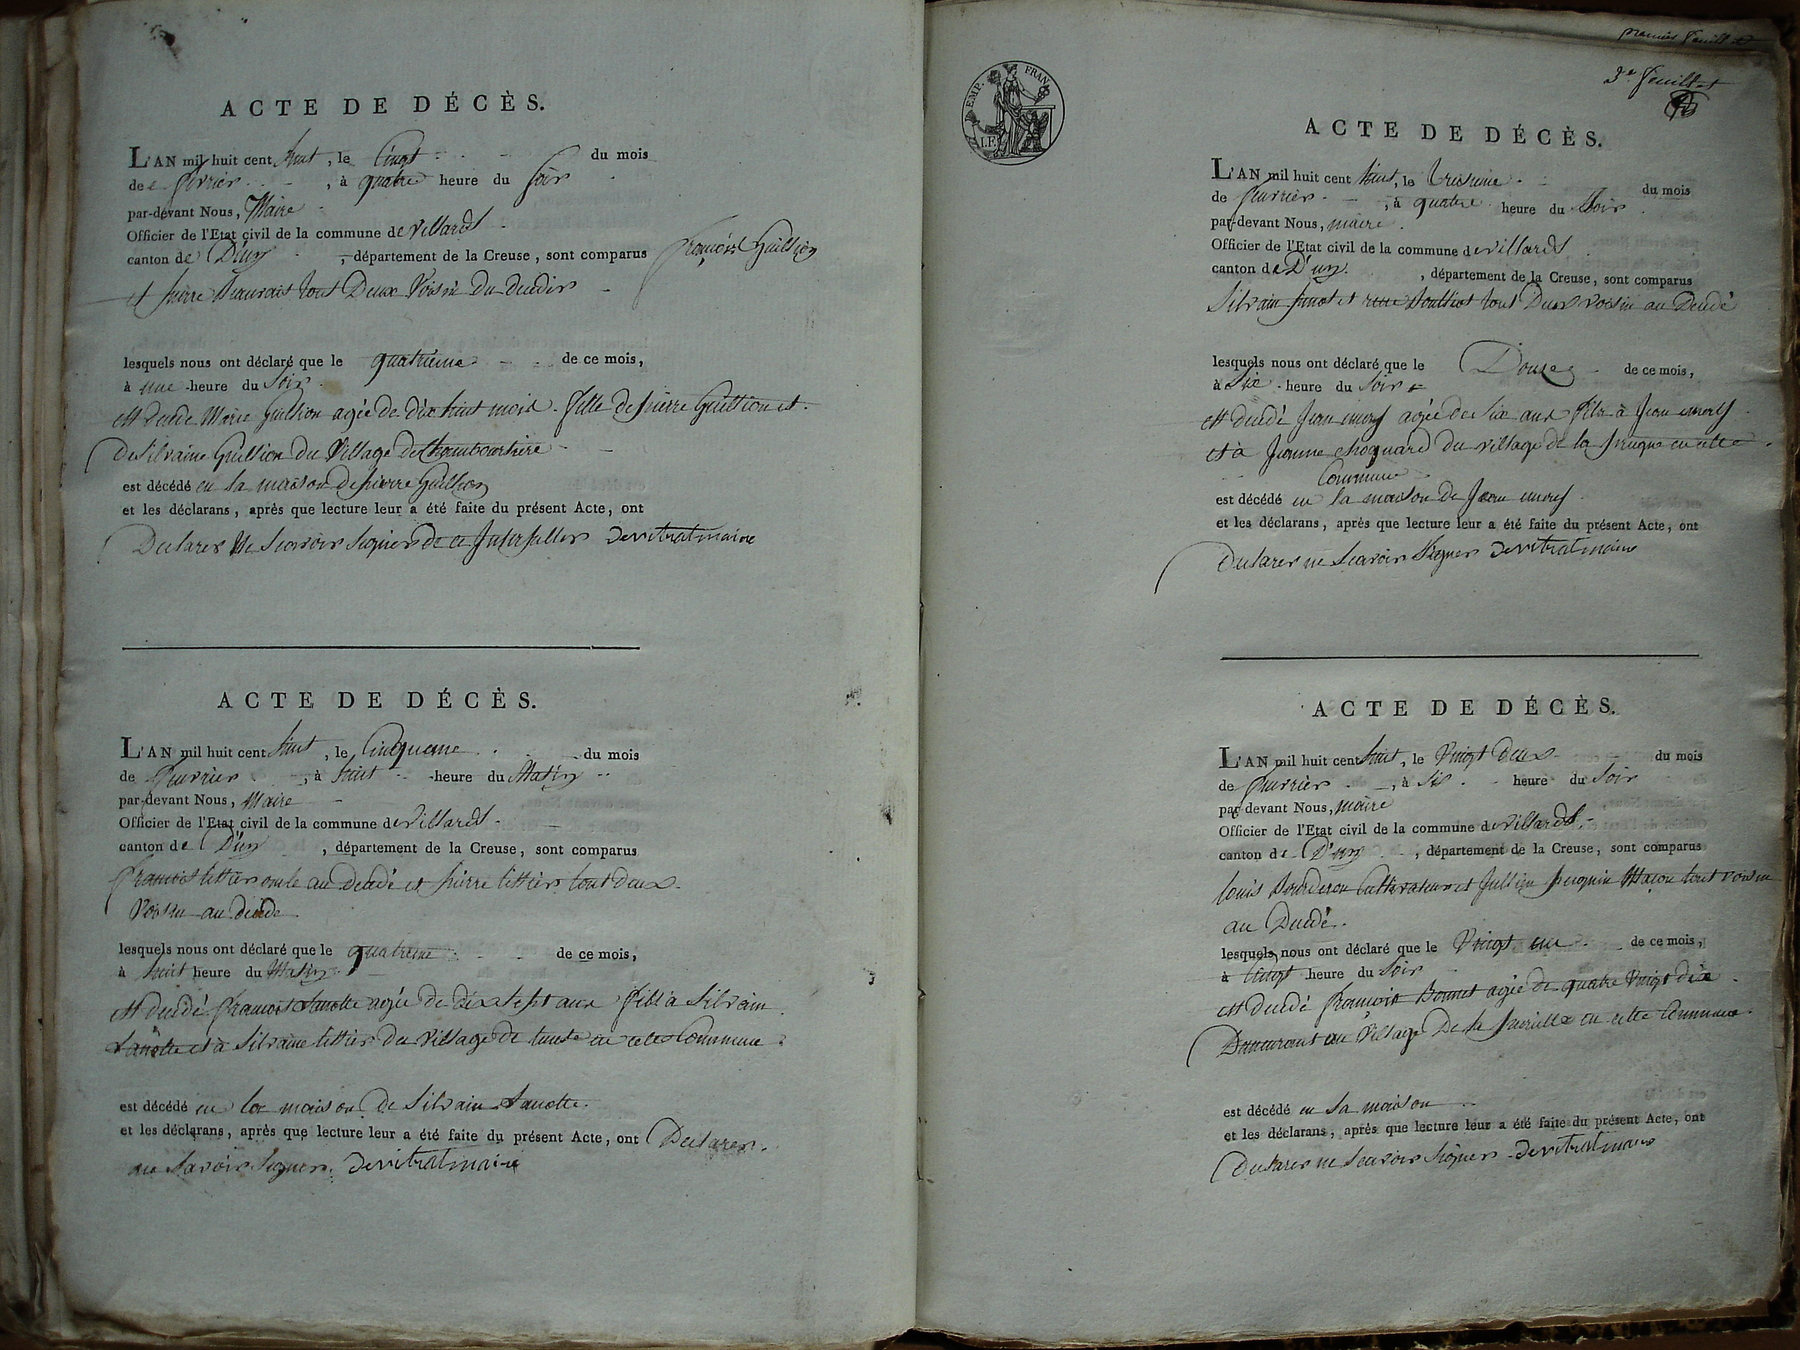 ACTE DE DÉCÈS.
L'AN mil huit cent huit, le Cinq du mois
de fevrier, à quatre heure du soir
par-devant Nous, Maire
Officier de l'Etat civil de la commune de villards
canton de D'un, département de la Creuse, sont comparus françois Guillion
et pierre Beauvais tout Deux Voisin du
lesquels nous ont déclaré que le quatrieme de ce mois,
à une heure du soir
est decédé Marie Guillion agée de dix huit mois fille de pierre Guillion et
de silvaine Guillion du village de
est décédé en la maison de pierre Guillion
et les déclarans, après que lecture leur a été faite du présent Acte, ont
Declarer Ne scavoir signer de ce
ACTE DE DÉCÈS.
L'AN mil huit cent huit, le Cinquieme du mois
de fevrier, à huit heure du Matin
par-devant Nous, Maire
Officier de l'Etat civil de la commune de villards
canton de D'un, département de la Creuse, sont comparus
francois littier oncle au Decédé et pierre littier tout deux
Voisin au decéde
lesquels nous ont déclaré que le quatrieme de ce mois,
à huit heure du Matin
est decédé francois Lanotte agée de dix sept ans fils à silvain
Lanotte et à silvaine littier du village de en cette Commune
est décédé en la maison de silvain Lanotte
et les déclarans, après que lecture leur a été faite du présent Acte, ont Declarer
ne savoir signer
premier feuillet
3e feuillet
EMP. FRAN.
ACTE DE DÉCÈS.
L'AN mil huit cent huit, le treisieme du mois
de fevrier, à quatre heure du soir
par-devant Nous, maire
Officier de l'Etat civil de la commune de villards
canton de D'un, département de la Creuse, sont comparus
silvain et tout Deux voisin au Decédé
lesquels nous ont déclaré que le Douze de ce mois,
à six heure du soir
est decédé Jean agée de six ans fils à Jean
et à Jeanne du village de la en cette
Commune
est décédé en la maison de Jean
et les déclarans, après que lecture leur a été faite du présent Acte, ont
Declarer ne scavoir signer
ACTE DE DÉCÈS.
L'AN mil huit cent huit, le Vingt deux du mois
de fevrier, à six heure du soir
par-devant Nous, maire
Officier de l'Etat civil de la commune de villards
canton de D'un, département de la Creuse, sont comparus
louis Cultivateur et Jullien Maçon tout voisin
au Decédé.
lesquels nous ont déclaré que le Vingt un de ce mois,
à Cinq heure du soir
est decédé françois Bonnet agée de quatre Vingt dix
Demeurant au Village De la en cette Commune
est décédé en sa maison
et les déclarans, après que lecture leur a été faite du présent Acte, ont
Declarer ne scavoir signer